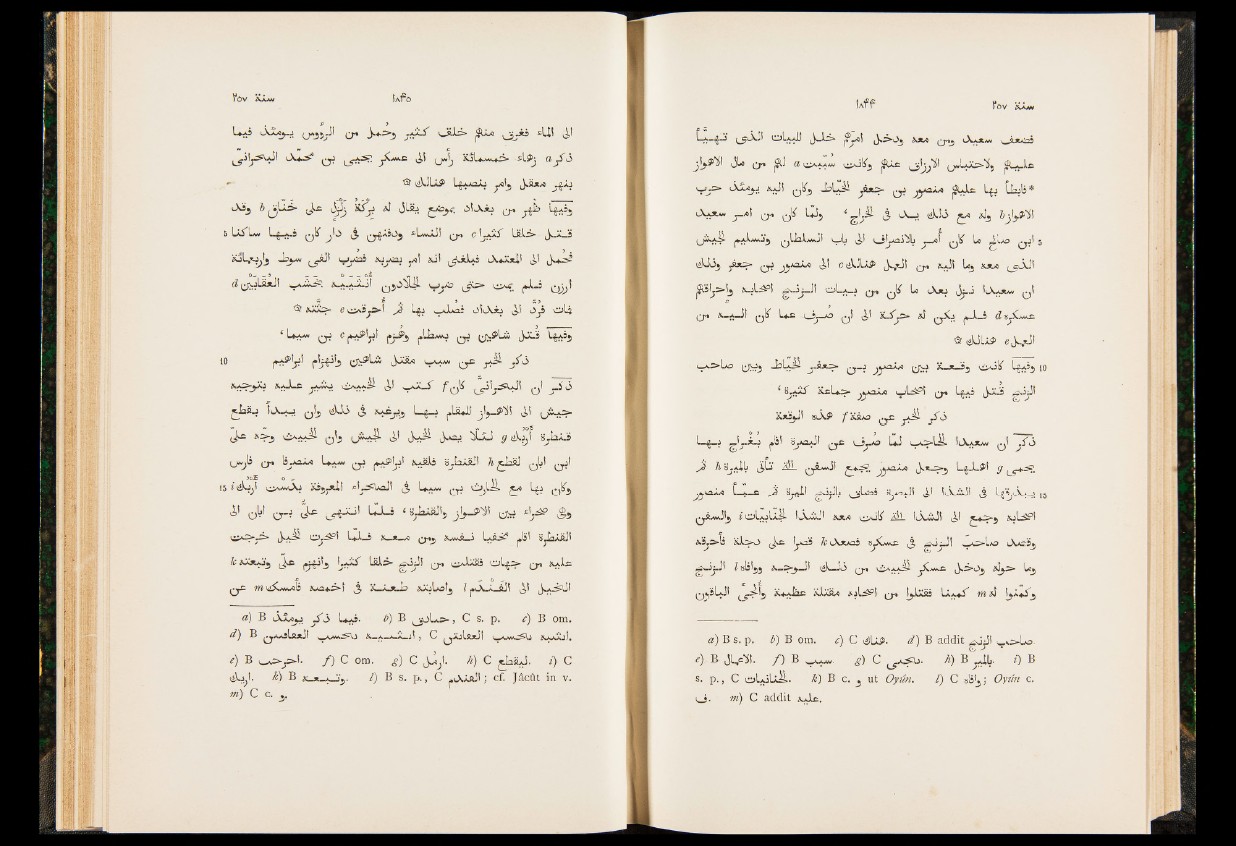 سنة ٢٥٧
١٨۴۴
فضعف سعيد ومن معه ودخل امرهم خلل للبيات الذى تهيّأ
عليهم ولاحتباس الارزاق عنهم وكانت سُبّبت a لهم من مال الاهواز
*فابطأ بها عليهم منصور بن جعفر الخيّاط وكان اليه يومئذ حرب
الاهواز b وله مع ذلك يد فى الخراج، ولما كان من امر سعيد
5 ابن صالح ما كان أُمر بالانصراف الى باب السلطان وتسليم الجيش
الذى معه وما اليه من العمل هنالك c الى منصور بن جعفر وذلك
ان سعيدا نزل بعد ما كان من بيات الزنج اصحابه واحراقهم
عسكره d فلم يكن له حركة الى ان صُرف عما كان اليه من
العمل e هنالك ۞
10 وفيها كانت وقعة بين منصور بن جعفر الخيّاط وبين صاحب
الزنج قُتل فيها من اصحاب منصور جماعة كثيرة،
ذكر الخبر عن صفة f هذه الوقعة
ذُكر ان سعيدا الحاجب لمّا صُرف عن البصرة اقام بها
يحمى g اهلها وجعل منصور يجمع السفن التى تأتى بالميرة h ثم
15 يبذرقها فى الشذا الى البصرة فضاق بالزنج الميرة ثم عبّأ منصور
اصحابه وجمع الى الشذا التى كانت معه الشذا i والسفن
وقصد صاحبَ الزنج فى عسكره فصعد k قصرا على دجلة فاحرقه
وما حوله ودخل عسكر الخبيث من ذلك الوجه ووافاه l الزنج
وكمّنوا له m كمينا فقتلوا من اصحابه مقتلة عظيمة وأُلجئ الباقون
a) B s. p. b) B om. c) C هناك. d) B addit صاحب الزنج.
e) B الاعمال. f) B سبب. g) C . h) B بالمير. i) B
s. p., C . k) B c. و ut Oyún. l) C ; Oyún c.
ف. m) C addit عليه.
١٨۴٥
سنة ٢٥٧
الى الماء فغرق منهم خلق كثير وحُمل من الرؤوس يومئذ فيما
ذُكر a زهاء خمسمائة رأس الى عسكر يحيى بن محمّد البحرانىّ
بنهر معقل وامر بنصبها هنالك ۞
وفيها ظُهر من بغداد بموضع يقال له بِرْكَة زَلْزَل على خنّاق b وقد
5 قتل خلقا كثيرا c من النساء ودفنهن فى دار كان فيها ساكنا
فحُمل الى المعتمد فبلغنى انه امر بضربه فضُرب الفى سوط واربعمائة
ارزن فلم يمت حتى ضرب الجلّادون أُنْثَيَيْه بخشب العُقابَيْن d
فات فرُدّ الى بغداد فصُلب بها ثم احرقت e جثّته ۞
وفيها قُتل شاهين بن بسطام وهُزم ابراهيم c بن سيما،
10 ذكر الخبر عن سبب مقتل شاهين وانهزام ابراهيم
ذُكر ان البحرانىّ كان f كتب الى الخبيث يشير عليه بتوجيه
جيش الى الاهواز للمقام بها ويرغبه فى ذلك وان يبدأ بقطع
قنطرة أَرْبُك g لئلا يصل الخيل الى الجيش وان الخبيث وجّه علىّ
ابن ابان لقطع h القنطرة فلقيه ابراهيم بن سيما منصرفا من فارس
15 وكان بها مع الحارث بن سيما فى الصحراء المعروفة بدَسْت أَرْبُك i
وهى صحراء بين الاهواز والقنطرة، فلما انتهى علىّ بن ابان الى
القنطرة اقام مخفيا نفسه ومن معه فلما اصحرت الخيل خرجت
عليه من جهات فقتلت من الزنج خلقا كثيرا وانهزم علىّ وتبعته k
الخيل الى الفَنْدَم l واصابته طعنة فى اخمصه فامسك m عن
a) B فيما ذكر يومئذ. b) B , C s. p. c) B om.
d) B , C .
e) B احرجت. f) C om. g) C ارمل. h) C ليقطع. i) C
اربك. k) B وتبعه. l) B s. p., C ; cf. Jâcût in v.
m) C c. و.